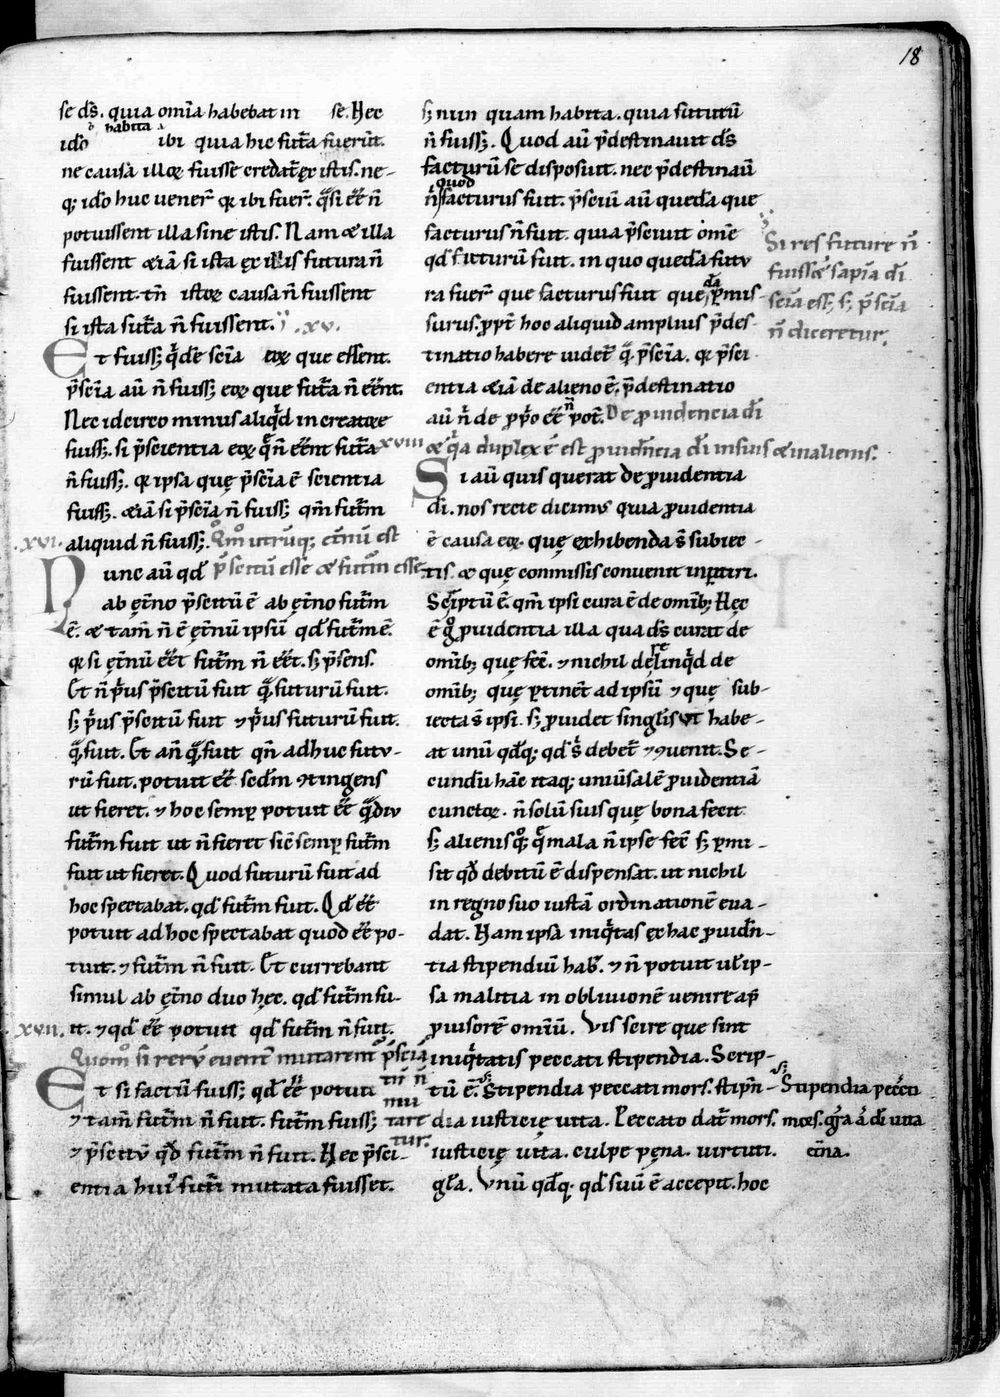 18
se ds̄. quia om̄ia habebat in se. Hec
idō habita ibi quia hic fut̄a fuerūt.
ne causa illoꝝ fuisse credat᷑ ex istis. ne-
q; idō huc uener̄ qꝛ ibi fuer̄. q̄si ēē n̄
potuissent illa sine istis. Nam & illa
fuissent & iā si ista ex illis futura n̄
fuissent. tn̄ istoꝝ causa n̄ fuissent
si ista fut̄a n̄ fuissent. .xv.
Et fuiss; q̇de scīa eoꝝ que essent.
p̄scīa aū n̄ fuiss; eoꝝ que fut̄a n̄ ēēnt.
Nec idcirco minus aliq̇d in creatore
fuiss; si p̄scientia eoꝝ q̄ n̄ ēēnt fut̄a
n̄ fuiss;. qꝛ ipsa quę p̄scīa ē scientia
fuiss;. & iā si p̄scīa n̄ fuiss; qm̄ fut̄m
.xvi. aliquid n̄ fuiss;. Qm̊ utrūq; et̄nū est
p̄scitū esse & fut̄m esse
Nunc aū qd̄
ab et̄no p̄scitū ē ab et̄no fut̄m
ē. & tam̄ n̄ ē et̄nū ipsū qd̄ fut̄m ē.
qꝛ si et̄nū ēēt fut̄m n̄ ēēt. s; p̄sens.
Et n̄ p̄us p̄scitū fuit q̄ futurū fuit.
s; p̄us p̄scitū fuit ⁊ p̄us futurū fuit.
q̄ fuit. Et an̄ q̄ fuit qn̄ adhuc futu-
rū fuit. potuit ēē scd̄m ꝯtingens
ut fieret. ⁊ hoc semꝑ potuit ēē q̄diu
fut̄m fuit ut n̄ fieret sic̄ semꝑ fut̄m
fuit ut fieret. Quod futurū fuit ad
hoc spectabat. qd̄ fut̄m fuit. Qd̄ ēē
potuit ad hoc spectabat quod ēē po-
tuit. ⁊ fut̄m n̄ fuit. Et currebant
simul ab et̄no duo hęc. qd̄ fut̄m fu-
.xvii. it. ⁊ qd̄ ēē potuit qd̄ fut̄m n̄ fuit.
Quom̊ si rerū euent᷑ mutarent᷑ p̄scīa
tn̄ n̄
mu
tare
tur.
Et si factū fuiss; qd̄ ēē potuit
⁊ tam̄ fut̄m n̄ fuit. fut̄m fuiss;
⁊ p̄scitū qd̄ fut̄m n̄ fuit. Hec p̄sci-
entia hui᷒ fut̄i mutata fuisset.
s; nun quam habita. quia futurū
n̄ fuiss;. Quod aū p̄destinauit ds̄
facturū se disposuit. nec p̄destinauī
n̄ quod facturus fuit. p̄sciuit aū quedā que
facturus n̄ fuit. quia p̄sciuit om̄e
qd̄ futurū fuit. in quo quedā futu
ra fuer̄ que facturus fuit quędā ꝑmis-
surus. ꝓpt̄ hoc aliquid amplius p̄des-
tinatio habere uidet᷑ q̄ p̄scīa. qꝛ p̄sci
entia & iā de alieno ē. p̄destinatio
aū n̄ de ꝓp̊o ēē n̄ pot̄. De ꝓuidencia dī
xviii & q̄a duplex ē est ꝓuidn̄cia dī in suis & in alienis.
Si aū quis querat de ꝓuidentia
dī. nos recte dicimꝰ quia ꝓuidentia
ē causa eoꝝ. quę exhibenda s̄ subiec-
tis. & quę commissis conuenit inꝑtiri.
Scriptū ē. qm̄ ipsi cura ē de omīb; Hęc
ē g̊ ꝓuidentia illa qua ds̄ curat de
omīb; quę fec̄. ⁊ nichil derelinq̄d de
omīb; quę ꝑtinēt ad ipsū ⁊ quę sub-
iecta s̄ ipsi. s; ꝓuidet singlīs ut habe-
at unū qdq; qd̄ s̄ debet᷑ ⁊ ꝯuenit. Se-
cundū hāc itaq; uniūsalē ꝓuidentiā
cunctoꝝ. n̄ solū suis quę bona fecit
s; alienis q̊q; q̄ mala n̄ ipse fec̄ s; ꝑmi-
sit qd̄ debitū ē dispensat. ut nichil
in regno suo iustā ordinationē eua-
dat. Nam ipsa iniq̇tas ex hac ꝓuidn̄-
tia stipendiū hab᷑. ⁊ n̄ potuit ul̄ ip-
sa malitia in obliuionē uenire ap̄
ꝓuisorē omīū. Vis scire que sint
iniq̇tatis peccati stipendia. Scrip-
tū ē. Stipendia peccati mors. stipn̄-
dia iusticię uita. Peccato dat᷑ mors.
iusticię uita. culpę pęna. uirtuti.
grā. Vnū qdq; qd̄ suū ē accepit. hoc
Si res future n̄
fuissēt sapīa dī
scīa ess; s; p̄scīa
n̄ diceretur.
s; Stipendia peccī
mors. grā ā dī uita
et̄na.